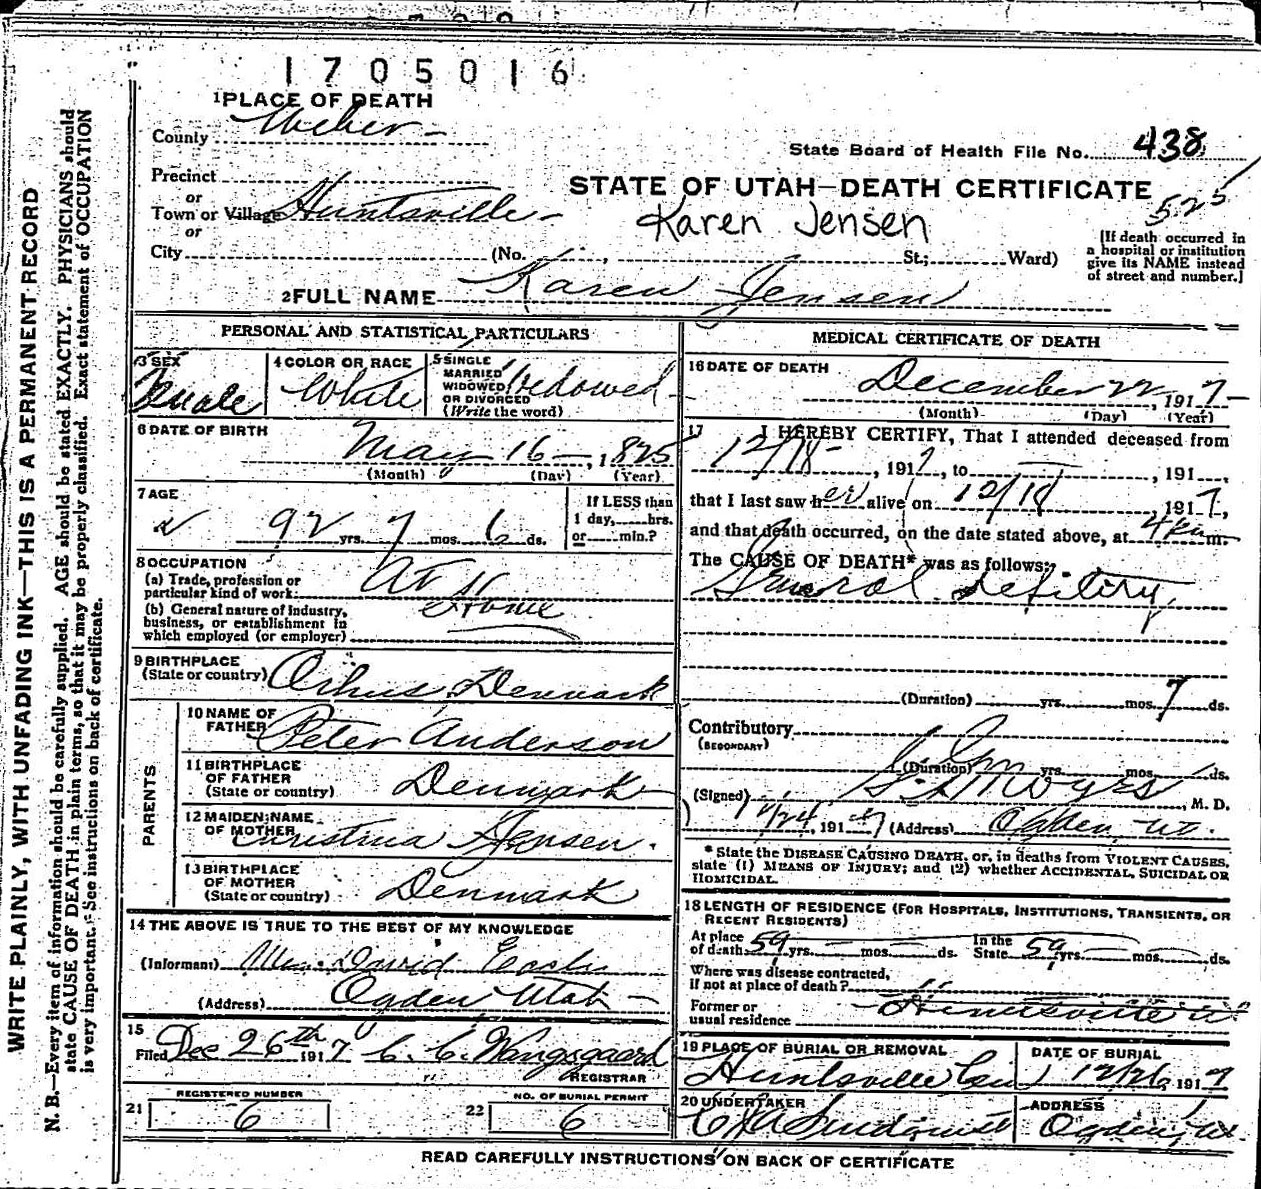 1705016
1 PLACE OF DEATH
County Weber
State Board of Health File No. 438
Precinct
or
Town or Village Huntsville
or
City
STATE OF UTAH—DEATH CERTIFICATE
525
Karen Jensen
(No. , St.; Ward)
[If death occurred in
a hospital or institution
give its NAME instead
of street and number.]
2 FULL NAME Karen Jensen
PERSONAL AND STATISTICAL PARTICULARS
3 SEX
Female
4 COLOR OR RACE
White
5 SINGLE
MARRIED
WIDOWED
OR DIVORCED
(Write the word)
Widowed
6 DATE OF BIRTH
May 16, 1825
(Month) (Day) (Year)
7 AGE
92 yrs. 7 mos. 6 ds.
If LESS than
1 day, hrs.
or min.?
8 OCCUPATION
(a) Trade, profession or
particular kind of work:
At Home
(b) General nature of industry,
business, or establishment in
which employed (or employer)
9 BIRTHPLACE
(State or country) Denmark
10 NAME OF
FATHER Peter Anderson
11 BIRTHPLACE
OF FATHER
(State or country) Denmark
12 MAIDEN NAME
OF MOTHER Christina Jensen.
13 BIRTHPLACE
OF MOTHER
(State or country) Denmark
PARENTS
14 THE ABOVE IS TRUE TO THE BEST OF MY KNOWLEDGE
(Informant) David
(Address) Ogden Utah
15
Filed Dec 26th 1917 C. C. Wangsgaard
REGISTRAR
21 REGISTERED NUMBER
6
22 NO. OF BURIAL PERMIT
6
MEDICAL CERTIFICATE OF DEATH
16 DATE OF DEATH
December 22, 1917
(Month) (Day) (Year)
17 I HEREBY CERTIFY, That I attended deceased from
12/18, 1917, to , 191
that I last saw her alive on 12/18, 1917,
and that death occurred, on the date stated above, at 4 m.
The CAUSE OF DEATH* was as follows:
General debility
(Duration) yrs. mos. 7 ds.
Contributory
(SECONDARY)
(Duration) yrs. mos. ds.
(Signed) , M. D.
12/24, 1917 (Address) Ogden, Ut.
* State the DISEASE CAUSING DEATH, or, in deaths from VIOLENT CAUSES,
state (1) MEANS OF INJURY; and (2) whether ACCIDENTAL, SUICIDAL OR
HOMICIDAL.
18 LENGTH OF RESIDENCE (FOR HOSPITALS, INSTITUTIONS, TRANSIENTS, OR
RECENT RESIDENTS)
At place
of death 59 yrs. mos. ds.
In the
State 59 yrs. mos. ds.
Where was disease contracted,
if not at place of death?
Former or
usual residence Huntsville Ut
19 PLACE OF BURIAL OR REMOVAL
Huntsville Cem
DATE OF BURIAL
12/26, 1917
20 UNDERTAKER
ADDRESS
Ogden, Ut.
READ CAREFULLY INSTRUCTIONS ON BACK OF CERTIFICATE
WRITE PLAINLY, WITH UNFADING INK—THIS IS A PERMANENT RECORD
N. B.—Every item of information should be carefully supplied. AGE should be stated EXACTLY. PHYSICIANS should
state CAUSE OF DEATH in plain terms, so that it may be properly classified. Exact statement of OCCUPATION
is very important. See instructions on back of certificate.